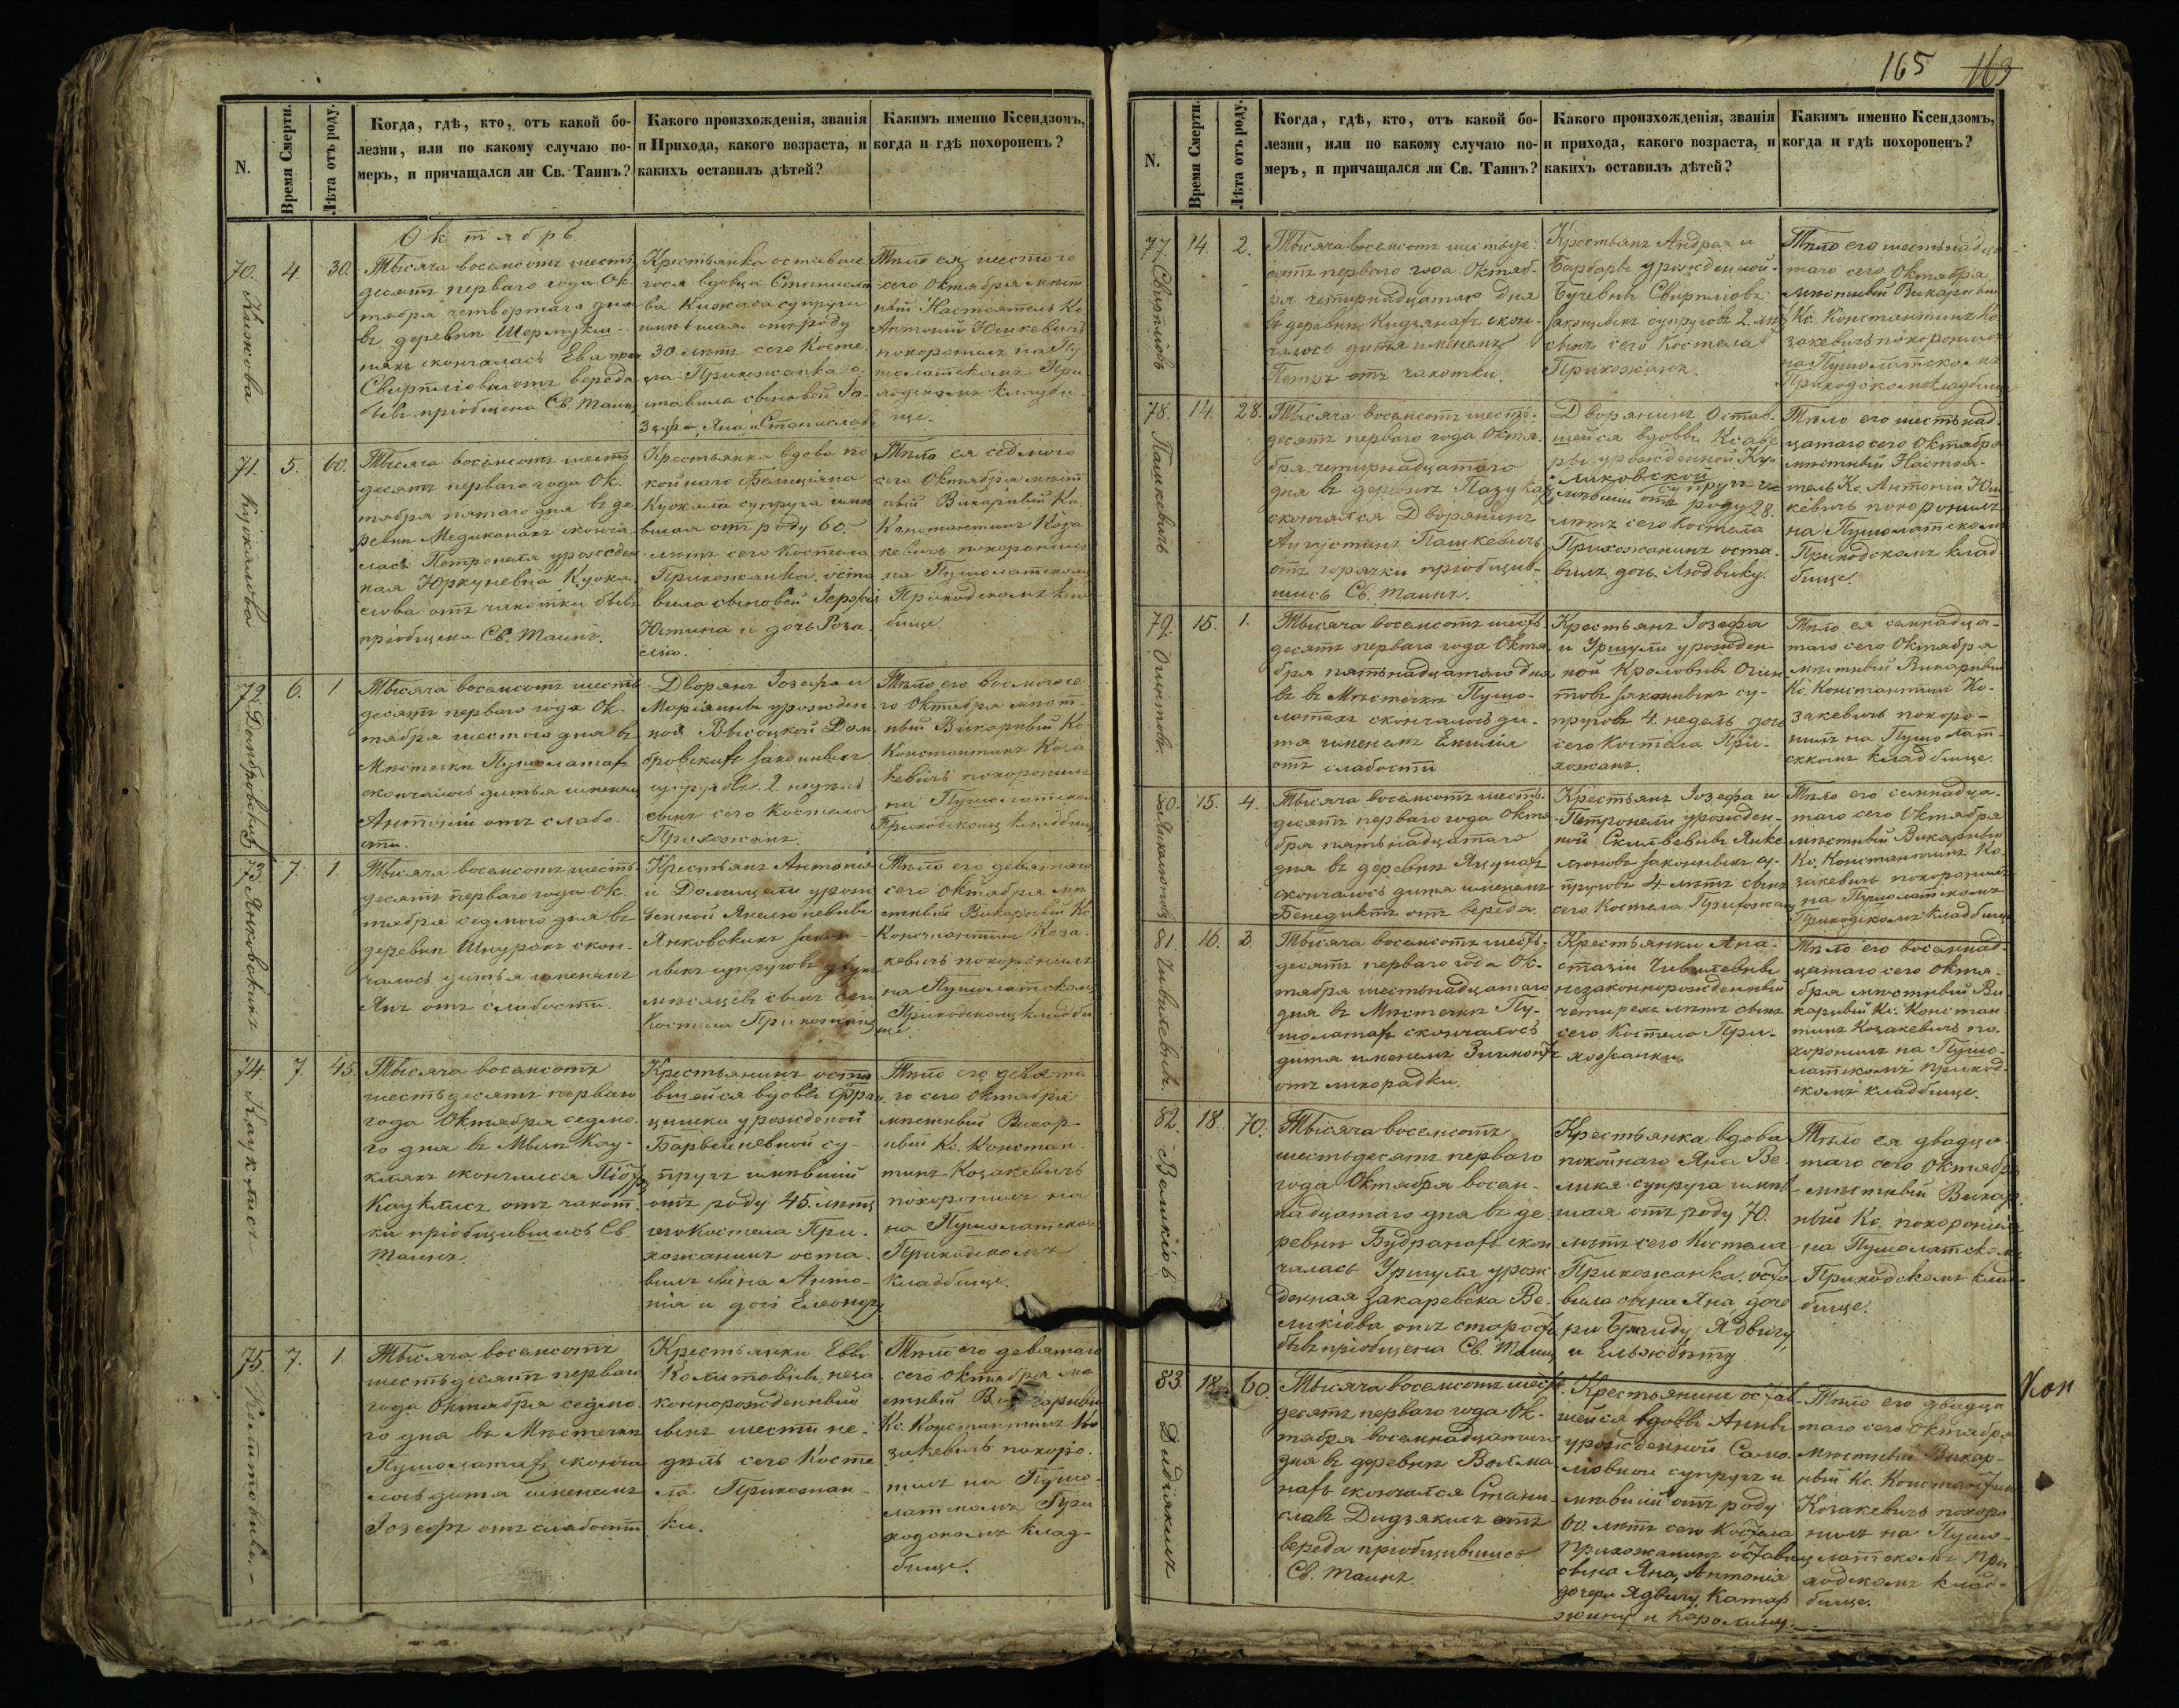 165 163
N.
Время Смерти.
Лѣта отъ роду.
Когда, гдѣ, кто, отъ какой бо-
лезни, или по какому случаю по-
меръ, и причащался ли Св. Таинъ?
Какого произхожденія, званія
и Прихода, какого возраста, и
какихъ оставилъ дѣтей?
Какимъ именно Ксендзомъ,
когда и гдѣ похороненъ?
Октябрь
70. Кижова
4.
30.
Тысяча восемсотъ шесть
десятъ перваго года Ок
тября четвертаго дня
въ деревни
скончалась Ева
отъ вереда
бывъ пріобщена Св. Таинъ
Крестьянка оставше
гося вдовца Станисла
ва Кижаса супруга
имѣвшая отъ роду
30 лѣтъ сего Косте
ла Прихожанка о
ставила сыновей Іо
зефа, Яна и Станислава
Тѣло ея шестого
сего Октября мѣст
ный Настоятель Кс
Антоній Юшкевичъ
похоронилъ на Пу
шолатскомъ При
ходскомъ кладби
ще.
71. Куокалова
5.
60.
Тысяча восемсотъ шесть
десятъ перваго года Ок.
тября пятаго дня въ де
ревни Медиканахъ сконча
лась Петронеля урожден
ная Юркуневна Куока
лова отъ чахотки бывъ
пріобщена Св. Таинъ.
Крестьянка вдова по
койнаго Фелиціана
Куокала супруга имѣ
вшая отъ роду 60.
лѣтъ сего Костела
Прихожанка оста
вила сыновей Іерофія
Юстина и дочь Роза
лію.
Тѣло ея седмого
сего Октября мѣст
ный Викарный Кс.
Константинъ Коза
кевичъ похоронилъ
на Пушолатскомъ
Приходскомъ клад
бище.
72. Домбровскихъ
6.
1
Тысяча восемсотъ шесть
десятъ перваго года Ок.
тября шестого дня въ
Мѣстечки Пушолатахъ
скончалось дитья именемъ
Антоній отъ слабо
сти.
Дворянъ Іозефа и
Маріанны урожден
ной Высоцкой Дом
бровскихъ законныхъ
супруговъ 2 недѣль
сынъ сего Костела
Прихожанъ.
Тѣло его восмого се
го Октября мѣст
ный Викарный Кс.
Константинъ Коза
кевичъ похоронилъ
на Пушолатскомъ
Приходскомъ кладбище
73. Янковскихъ
7.
1.
Тысяча восемсотъ шесть
десятъ перваго года Ок.
тября седмого дня въ
деревни Шнурахъ скон.
чалось дитья именемъ
Янъ отъ слабости.
Крестьянъ Антонія
и Доминцели урож
денной
Янковскихъ закон
ныхъ супруговъ двухъ
мѣсяцевъ сынъ сего
Костела Прихожанъ
Тѣло его девятаго
сего Октября мѣ
стный Викарный Кс
Константинъ Коза
кевичъ похоронилъ
на Пушолатскомъ
Приходскомъ кладби
ще.
74. Каукласъ
7.
45
Тысяча восемсотъ
шестьдесятъ перваго
года Октября седмо.
го дня въ Мызи Кау-
клякъ скончался Піотръ
Каукласъ отъ чахот.
ки пріобщившись Св
Таинъ.
Крестьянинъ оста
вшейся вдовы Фран
цишки урожденой
Барвейневной су-
пругъ имѣвшій
отъ роду 45. лѣтъ
сего Костела При.
хожанинъ оста.
вилъ сына Анто-
нія и дочь Елеонору
Тѣло его девята
го сего Октября
мѣстный Викар
ный Кс. Констан
тинъ Козакевичъ
похоронилъ на
на Пушолатскомъ
Приходскомъ
кладбище.
75.
7.
1
Тысяча восемсотъ
шестьдесятъ перваго
года Октября седмо.
го дня въ Мѣстечки
Пушолатахъ сконча
лось дитя именемъ
Іозефъ отъ слабости
Крестьянки Евы
незa
коннорожденный
сынъ шести не.
дѣль сего Косте
ла Прихожан-
ки.
Тѣло его девятаго
сего Октября мѣ
стный Викарный
Кс. Константинъ Ко
закевичъ похоро.
нилъ на Пушо-
латскомъ При
ходскомъ клад-
бище.
N.
Время Смерти.
Лѣта отъ роду.
Когда, гдѣ, кто, отъ какой бо-
лезни, или по какому случаю по-
меръ, и причащался ли Св. Таинъ?
Какого произхожденія, званія
и прихода, какого возраста, и
какихъ оставилъ дѣтей?
Какимъ именно Ксендзомъ,
когда и гдѣ похороненъ?
77. Свирпліовъ
14.
2.
Тысяча восемсотъ шестьде.
сятъ перваго года Октяб-
ря четирнадцатаго дня
въ деревни Кидзянахъ скон-
чалось дитя именемъ
Петръ отъ чахотки.
Крестьянъ Андрея и
Барбары урожденной
Свирпліовъ
законныхъ супруговъ 2. лѣтъ
сынъ сего Костела
Прихожанъ.
Тѣло его шестьнадца
таго сего Октября
мѣстный Викарный
Кс. Константинъ Ко
закевичъ похоронилъ
на Пушолатскомъ
Приходскомъ кладбище
78. Пашкевичъ
14.
28.
Тысяча восемсотъ шесть-
десятъ перваго года Октя.
бря четирнадцатаго
дня въ деревни Пазукахъ
скончался Дворянинъ
Августинъ Пашкевичъ
отъ горячки пріобщив-
шись Св. Таинъ.
Дворянинъ Остав.
шейся вдовы Ксаве
ры урожденной Ку-
ликовской супругъ и
мѣвшій отъ роду 28.
лѣтъ сего Костела
Прихожанинъ оста.
вилъ дочь Людвику.
Тѣло его шестьнад.
цатаго сего Октября
мѣстный Настоя-
тель Кс. Антоній Юш
кевичъ похоронилъ
на Пушолатскомъ
Приходскомъ клад
бище.
79. Огинтовъ
15.
1.
Тысяча восемсотъ шесть
десятъ перваго года Октя
бря пятьнадцатаго дня
въ въ Мѣстечки Пушо-
латахъ скончалось ди-
тя именемъ Емилія
отъ слабости
Крестьянъ Іозефа
и Уршули урожден
ной Кроловны Огин
товъ законныхъ су-
пруговъ 4. недель дочь
сего Костела При-
хожанъ.
Тѣло ея семнадца-
таго сего Октября
мѣстный Викарный
Кс. Константинъ Ко-
закевичъ похоро-
нилъ на Пушолат-
скомъ кладбище.
80.
15.
4.
Тысяча восемсотъ шесть-
десятъ перваго года Октя
бря пятьнадцатаго
дня въ деревни Яцунахъ
скончалось дитя именемъ
Бенедиктъ отъ вереда.
Крестьянъ Іозефа и
Петронели урожден-
ной
законныхъ су-
пруговъ 4 лѣтъ сынъ
сего Костела Прихожанъ
Тѣло его семнадца.
таго сего Октября
мѣстный Викарный
Кс. Константинъ Ко
закевичъ похоронилъ
на Пушолатскомъ
Приходскомъ кладбище
81. Чивилевны.
16.
3.
Тысяча восемсотъ шесть-
десятъ перваго года Ок-
тября шестьнадцатаго
дня въ Мѣстечки Пу-
шолатахъ скончалось
дитя именемъ Зигмонтъ
отъ лихорадки.
Крестьянки Ана-
стазіи Чивилевны
незаконнорожденный
четирехъ лѣтъ сынъ
сего Костела При-
хожанки.
Тѣло его восемнад-
цатаго сего Октя-
бря мѣстный Ви
карный Кс. Констан
тинъ Козакевичъ по.
хоронилъ на Пушо-
латскомъ приход-
скомъ кладбище.
82. Великіова
18.
70.
Тысяча восемсотъ
шестьдесятъ перваго
года Октября восем-
надцатаго дня въ де
ревни Будранахъ скон
чалась Уршуля урож
денная Закаревска Ве.
ликіова отъ старости
бывъ пріобщена Св. Таинъ
Крестьянка вдова
покойнаго Яна Ве.
ликя супруга имѣв
шая отъ роду 70.
лѣтъ сего Костела
Прихожанка. оста
вила сына Яна, доче
ри Бригиду, Ядвигу,
и Ельжбету
Тѣло ея двадца
таго сего Октября
мѣстный Викар
ный Кс. похоронилъ
на Пушолатскомъ
Приходскомъ клад
бище.
83. Дидзякисъ
18.
60.
Тысяча восемсотъ шесть
десятъ перваго года Ок-
тября восемнадцатаго
дня въ деревни
скончался Стани-
славъ Дидзякисъ отъ
вереда пріобщившись
Св. Таинъ.
Крестьянинъ остав
шейся вдовы Анны
урожденной Само.
ловной супругъ и
мѣвшій отъ роду
60. лѣтъ сего Костела
Прихожанинъ оставилъ
сына Яна, Антонія
дочери Ядвигу, Катар
жину и Каролину.
Тѣло его двадца
таго сего Октября
Мѣстный Викар-
ный Кс. Константинъ
Козакевичъ похоро
нилъ на Пушо-
латскомъ При
ходскомъ клад-
бище.